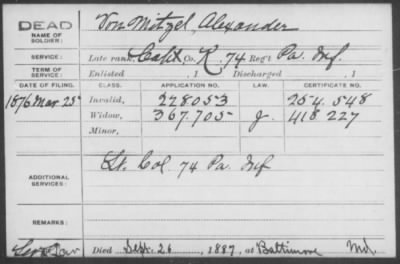 DEAD
NAME OF SOLDIER: Von Mitzel, Alexander
SERVICE: Late rank, Capt Co. K, 74 Reg't Pa. Inf.
Enlisted , 1 Discharged , 1
DATE OF FILING. CLASS. APPLICATION NO. LAW. CERTIFICATE NO.
1876 Mar 25 Invalid, 228053 254.548
Widow, 367.705 J. 418 227
Minor,
ADDITIONAL SERVICES: Lt. Col. 74 Pa Inf
REMARKS:
Died Sept. 26, 1887, at Baltimore Md.